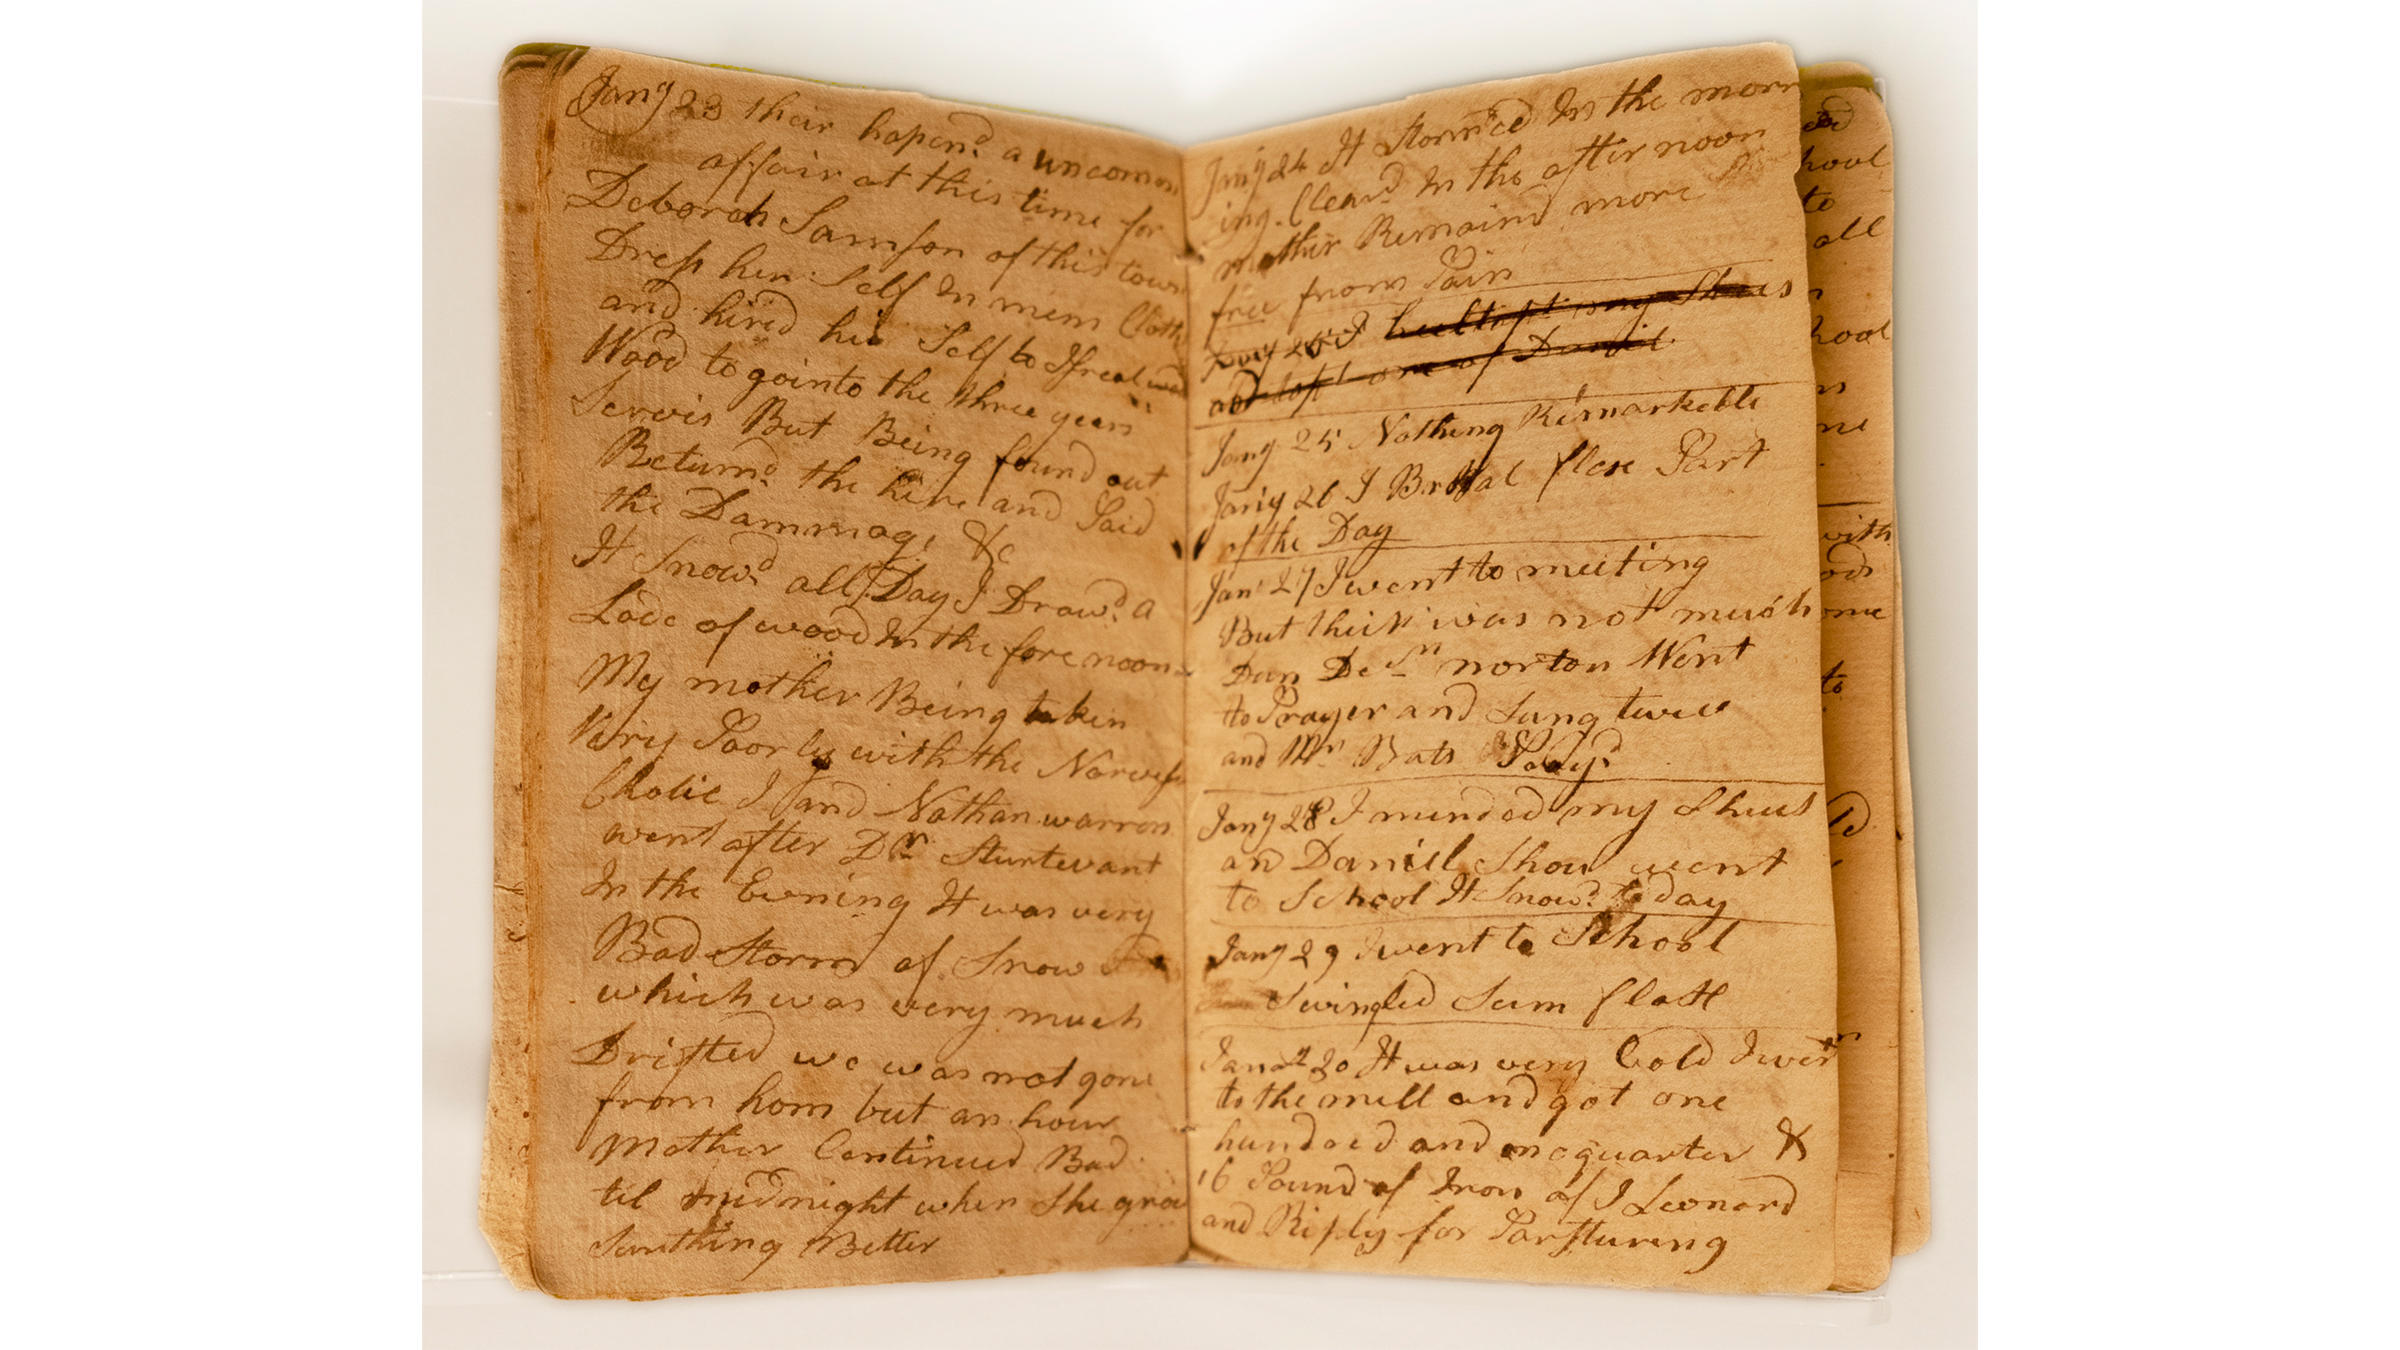 Jany 23 their hapend a uncommon
affair at this time for
Deborah Samson of this town
Dress her Self In mens Cloths
and hired his Self to Isreal wood
Wood to go into the three years
Servis But Being found out
Returnd the hire and Paid
the Dammag, &c
It Snowd all Day I Drawd a
Lode of wood In the fore noon
My mother Being taken
Very Poorly with the
Cholic I and Nathan warren
went after Dr Sturtevant
In the Evning It was very
Bad Storm of Snow
which was very much
Drifted we was not gone
from hom but an hour
Mother Continued Bad
til midnight when She grew
Sumthing Better
Jany 24 It Stormed In the morn
ing Cleard In the afternoon
mother Remaind more
free from Pain
Jany 25 I heeltapt my Shues
and tapt one of Daniel
Jany 25 Nothing Remarkeble
Jany 26 I flax Part
of the Day
Jan 27 I went to meeting
But their was not much
Dun Den norton Went
to Prayer and Sung twice
and Mr Bats Prayd
Jany 28 I mended my Shues
an Daniel Shou went
to School It Snowd to day
Jany 29 I went to School
Swingled Sum flax
Janry 30 It was very Cold I went
to the mill and got one
hundred and one quarter &
16 Pound of Iron of I Leonard
and Riply for Parsturing
ed
hool
to
all
hool
ne
with
ods
ome
to